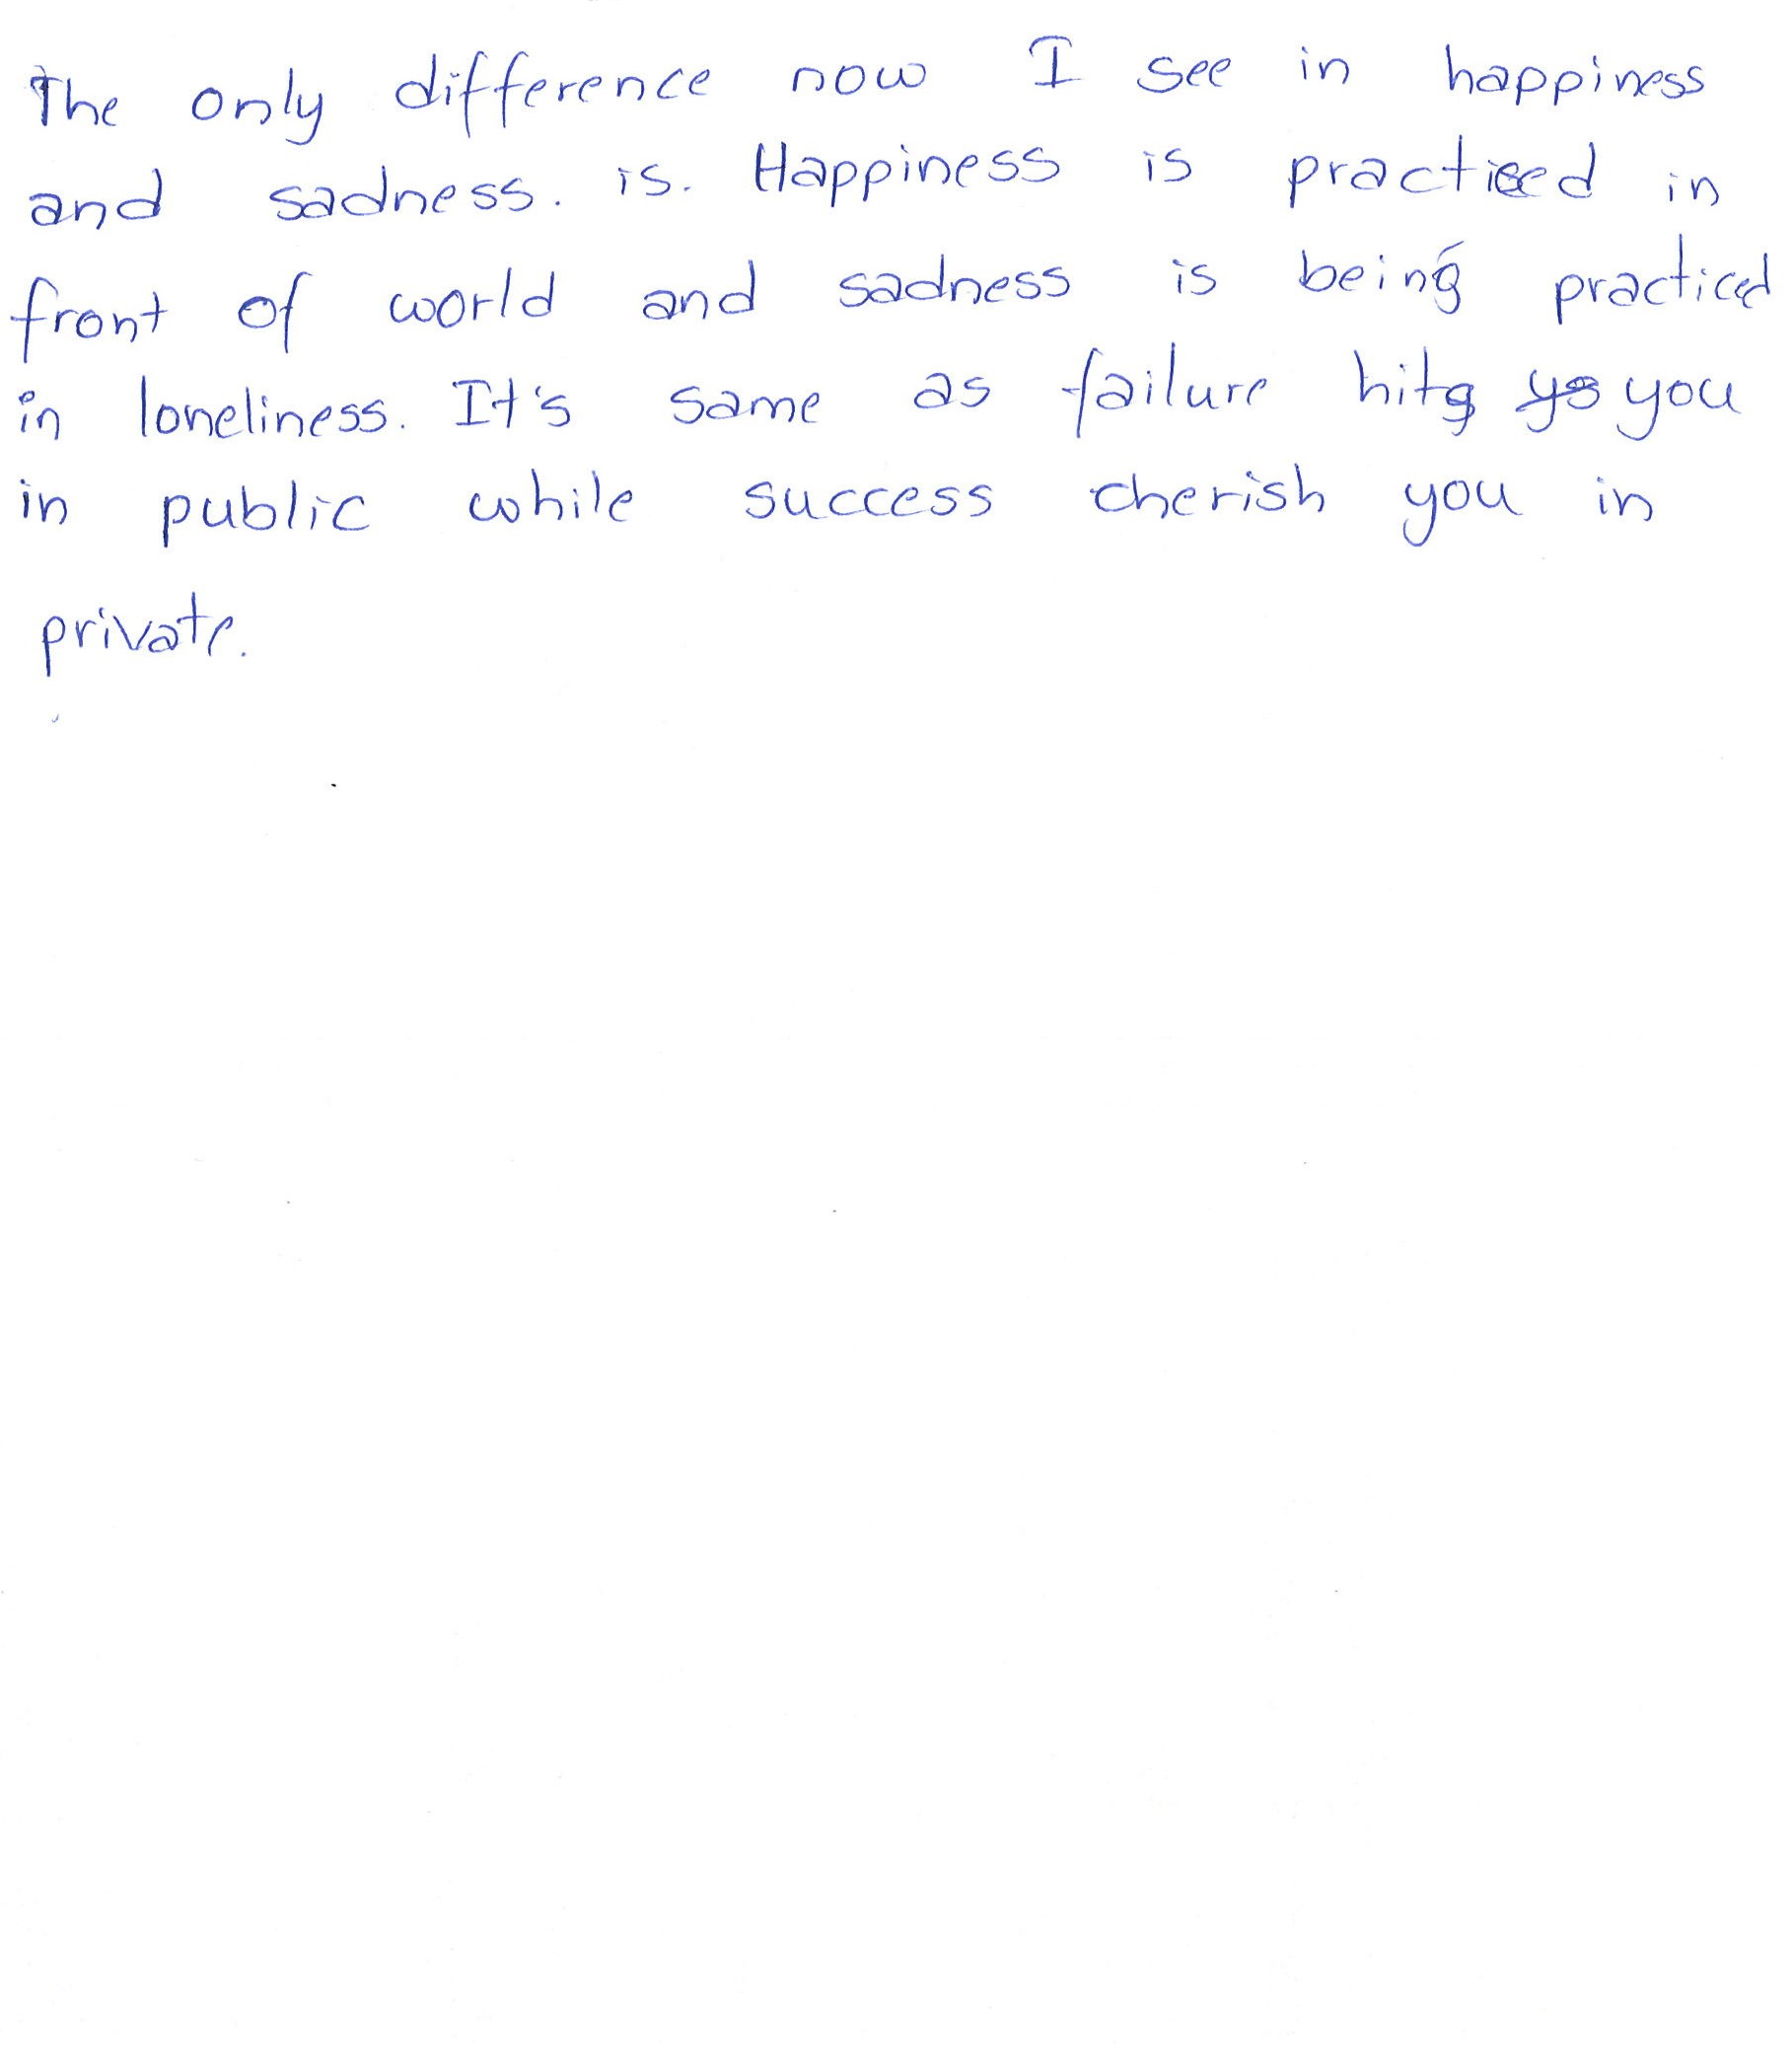 The only difference now I see in happiness
and sadness. is. Happiness is practiced in
front of world and sadness is being practiced
in loneliness. It's same as failure hits you
in public while success cherish you in
private.